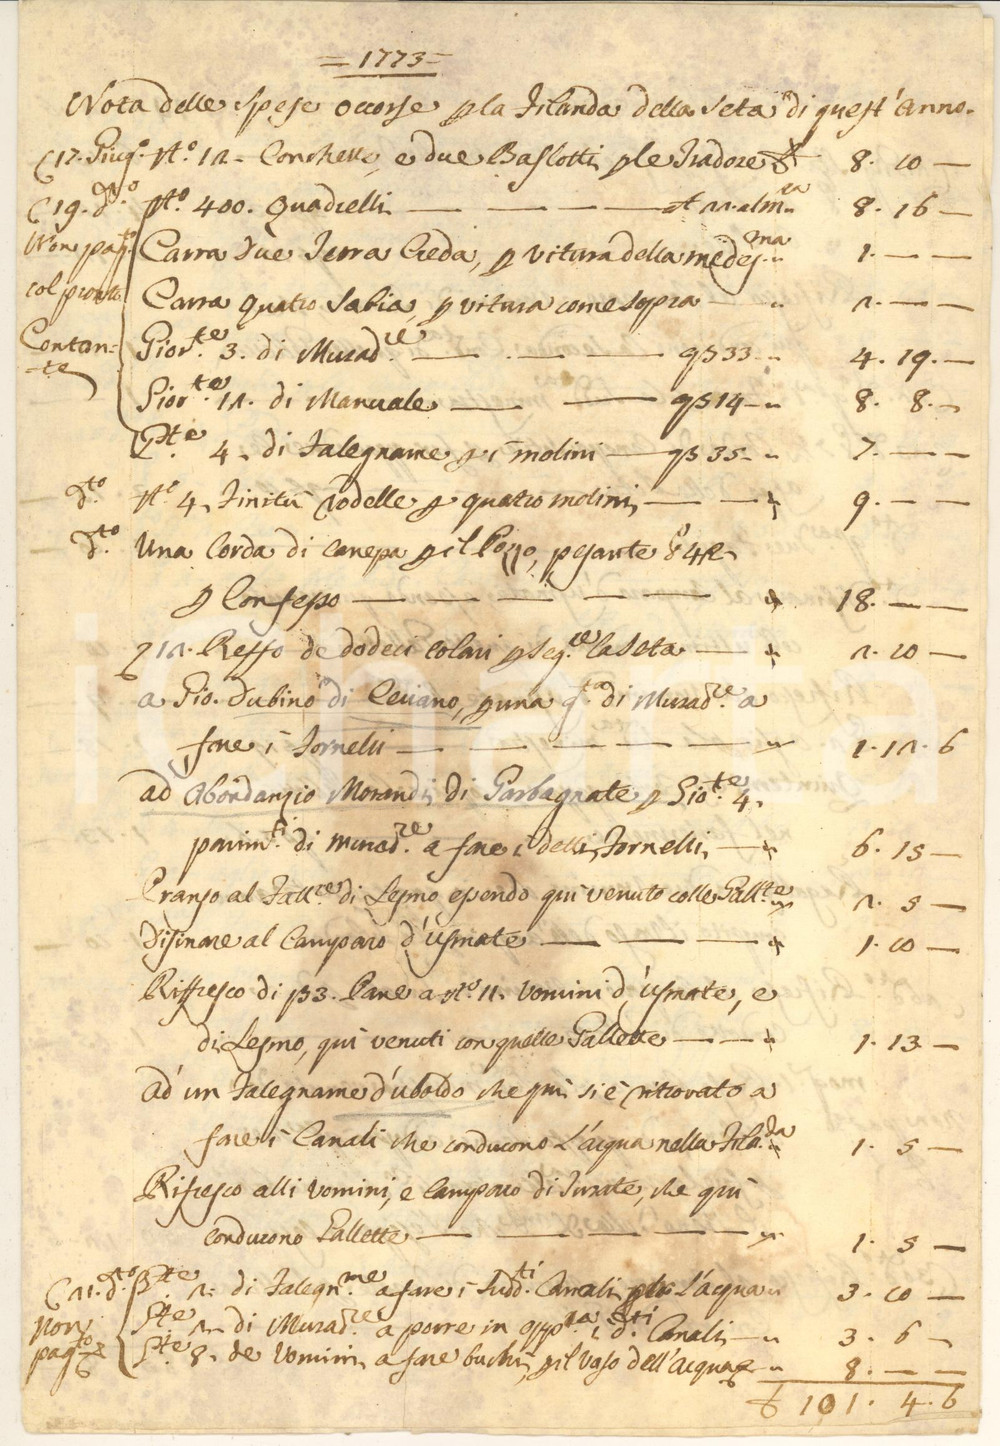 = 1773 =
Nota delle Spese occorse p la Filanda della Seta di quest'Anno.
17. Giug.o N.o 12. Conchette, e due Baslotti p le Tradore £ 8. 10 —
19. d.o N.o 400. Quadrelli — 8. 16 —
Non pag.to Carra due Terra Creda, p vitura della medes.ma 1. — —
col pronto Carra quatro Sabia, p vitura come sopra — 2. — —
Contan= Gior.te 3. di Murad.re — a s 33 — 4. 19. —
=te Gior.te 12. di Manuale — a s 14 — 8. 8. —
G.te 4. di Falegname p i molini — a s 35 — 7. — —
d.to N.o 4. rodelle p quatro molini — 9. — —
d.to Una Corda di Canepa p il Pozzo, pesante
p Conseso — 18. — —
Reffo de dodeci colari p la Seta — 2. 10 —
a Gio. Dubino di Ceviano, p una di Murad.re a
fare i Fornelli — 1. 12. 6
ad Abondanzio Morandi di Garbagnate p Gio.te 4.
parim.ti di Murad.re a fare i delli Fornelli — 6. 15 —
Pranso al Fatt.re di Lesmo esendo qui venuto colle Gall.te 2. 5 —
Disinare al Camparo d'Usmate — 1. 10 —
Riffresco di Pane a N.o 11. Vomini d'Usmate, e
di Lesmo, qui venuti con quelle Gallette — 1. 13 —
ad un Falegname d'Uboldo che qui si è ritrovato a
fare i Canali che conducono l'acqua nella Fila.da 1. 5 —
Rifresco alli Vomini, e Camparo di Turate, che qui
conducono Gallette — 1. 5 —
21. d.to G.te 2. di Falegn.me a fare i sud.ti Canali p l'acqua 3. 10 —
non G.te 2. di Murad.re a porre in opp.ra i d.ti Canali — 3. 6 —
pag.to G.te 8. de Vomini a fare buchi p il vaso dell'acqua 8. — —
£ 101. 4. 6